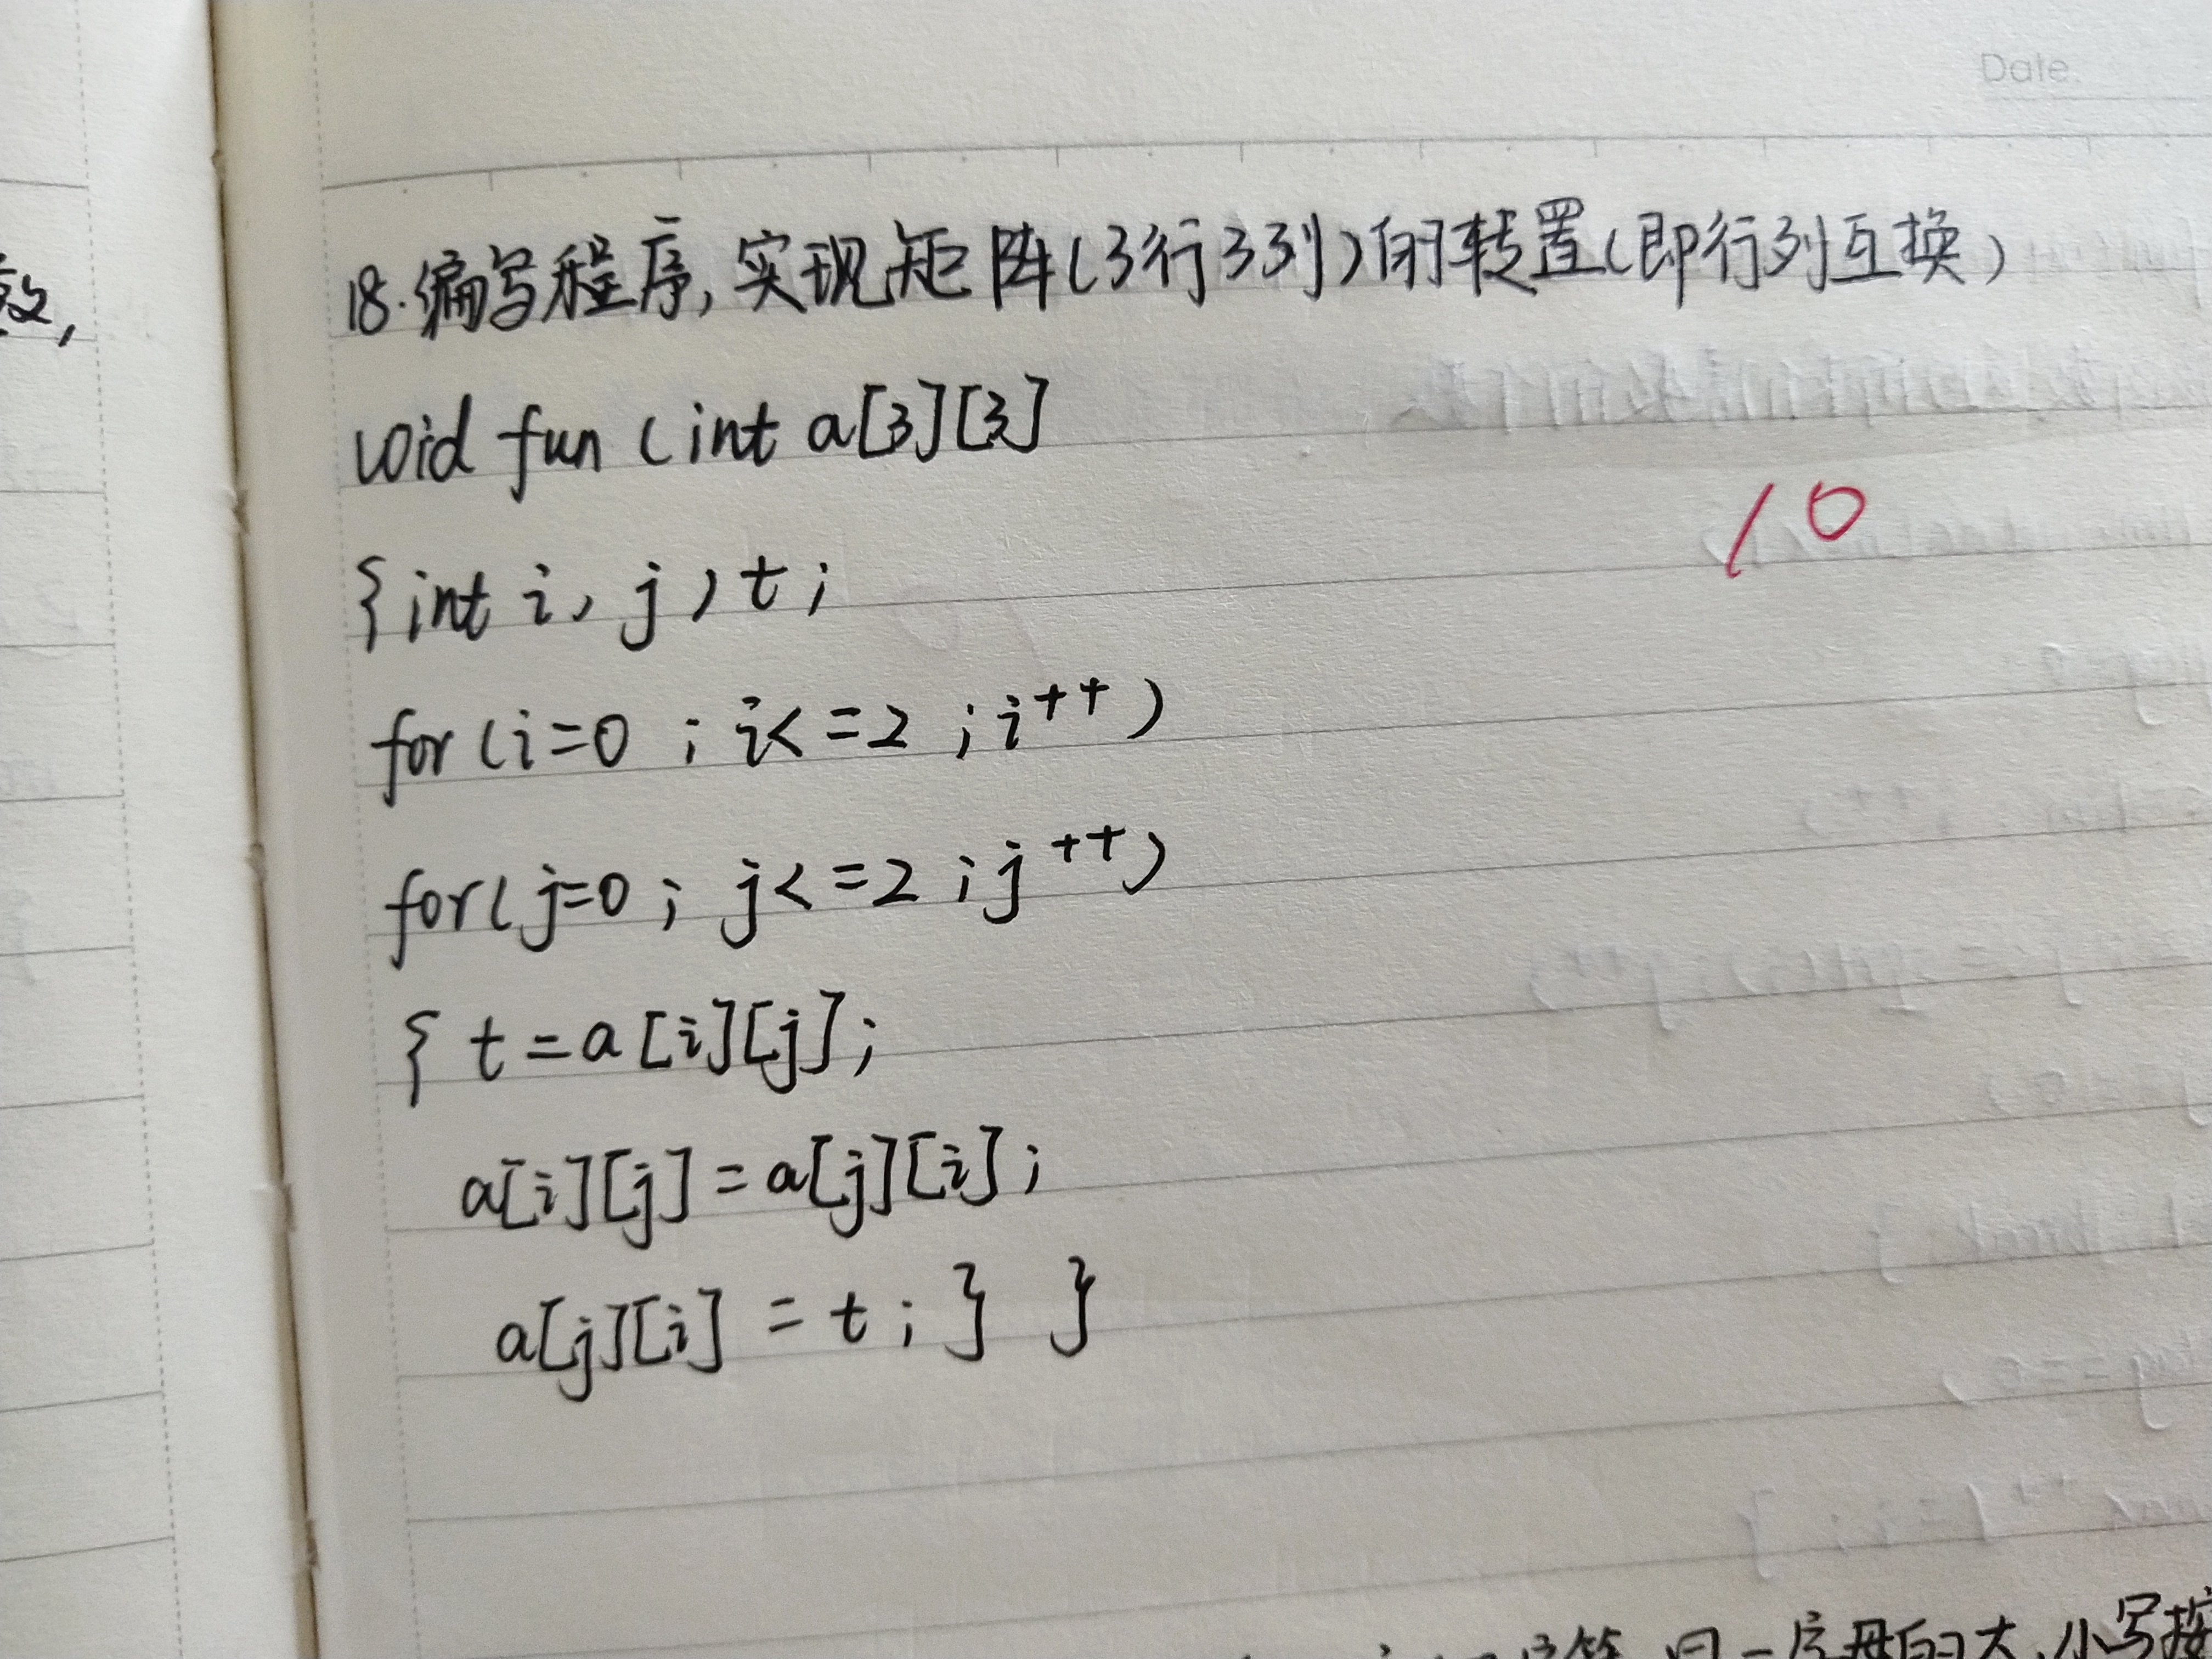 Date.
数,
18.编写程序,实现矩阵(3行3列)的转置(即行列互换)
void fun (int a[3][3]
10
{int i, j, t;
for(i=0 ; i<=2 ; i++)
for(j=0 ; j<=2 ; j++)
{ t=a[i][j];
a[i][j]=a[j][i];
a[j][i] = t; } }
同一字母的大、小写按